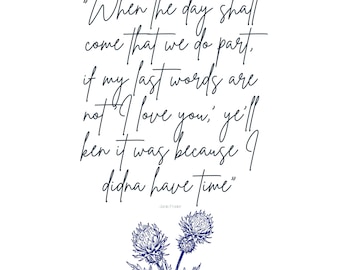 "When the day shall
come that we do part,
if my last words are
not 'I love you,' ye'll
ken it was because I
didna have time"